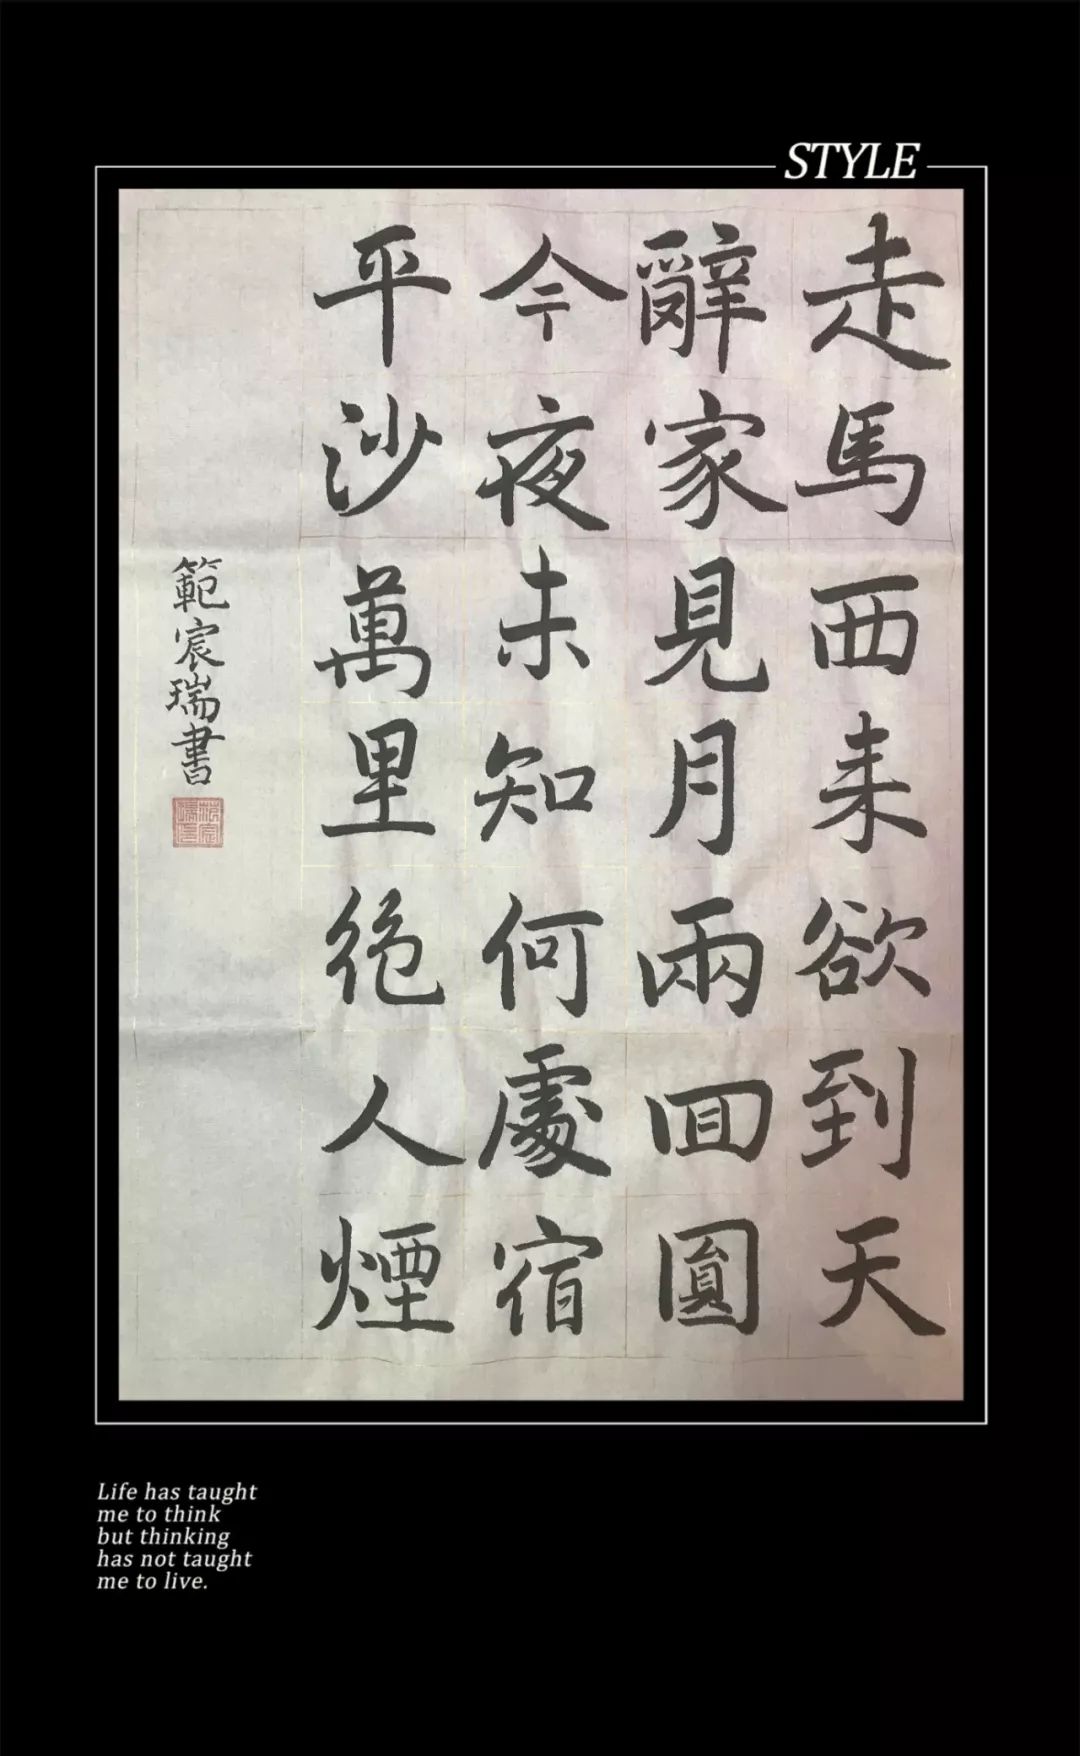 STYLE
走馬西来欲到天
辭家見月兩回圓
今夜未知何處宿
平沙萬里绝人煙
範宸瑞書
Life has taught
me to think
but thinking
has not taught
me to live.